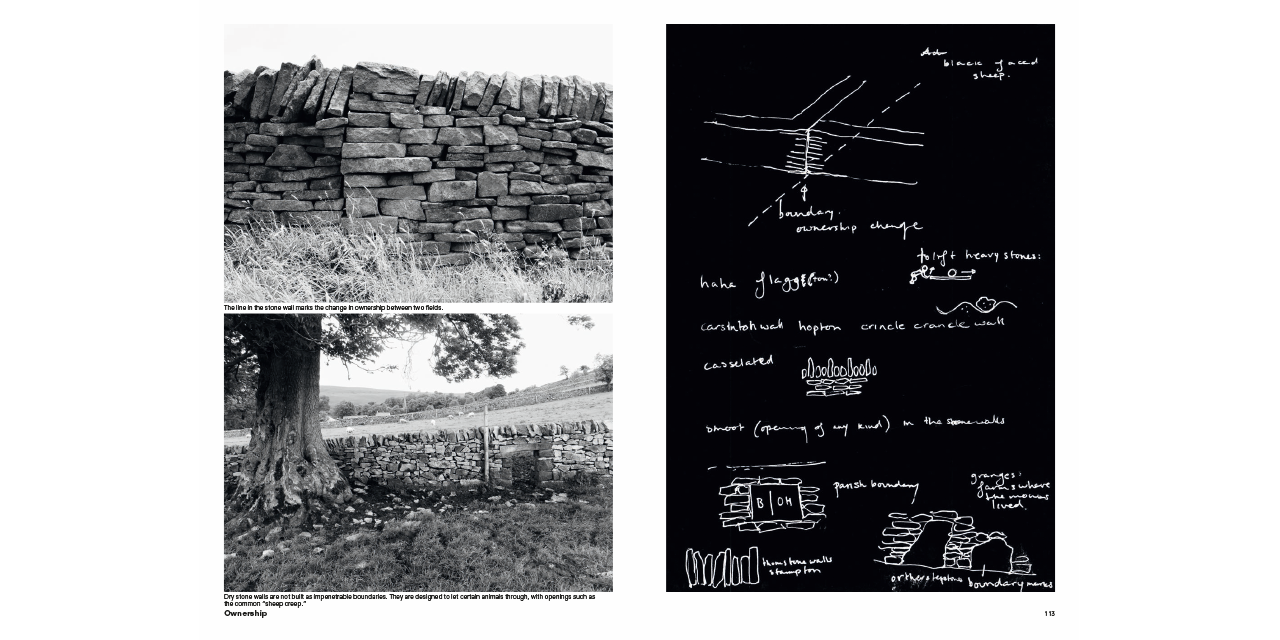 The line in the stone wall marks the change in ownership between two fields.
Dry stone walls are not built as impenetrable boundaries. They are designed to let certain animals through, with openings such as
the common "sheep creep."
Ownership
black faced
sheep.
boundary.
ownership change
to lift heavy stones:
hopton crincle crancle wall
casselated
smoot (opening of any kind) in the stone walls
parish boundary
B OH
granges:
farms where
the monks
lived.
stone walls
boundary marks
113